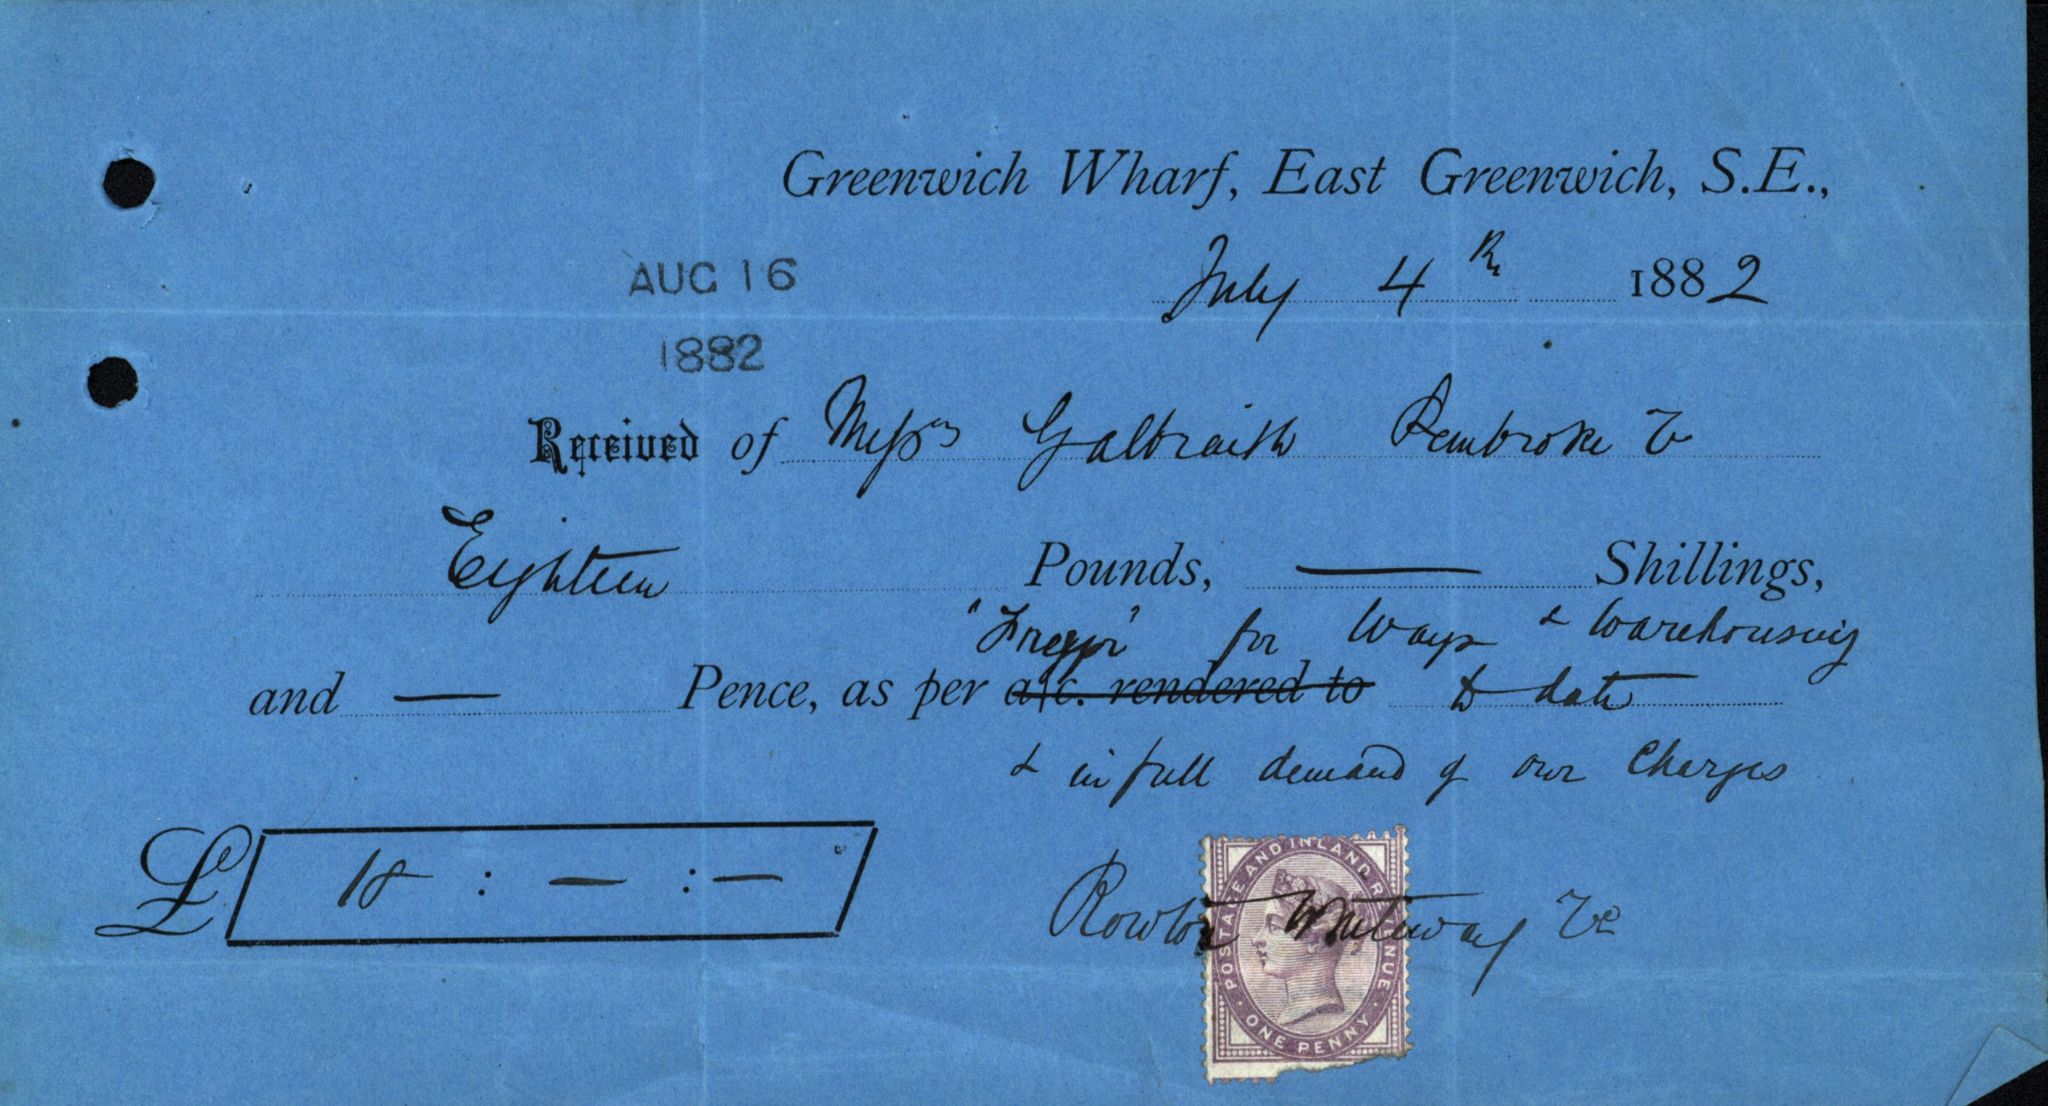 Greenwich Wharf, East Greenwich, S.E.,
July 4th 1882
AUG 16
1882
Received of Messrs Galbraith Pembroke &
Eighteen Pounds, — Shillings,
"Fregpr" for Ways & Warehousing
and — Pence, as per a/c. rendered to to date
& in full demand of our Charges
£ 18 : — : —
Rowton Whiteway &c
POSTAGE AND INLAND REVENUE
ONE PENNY